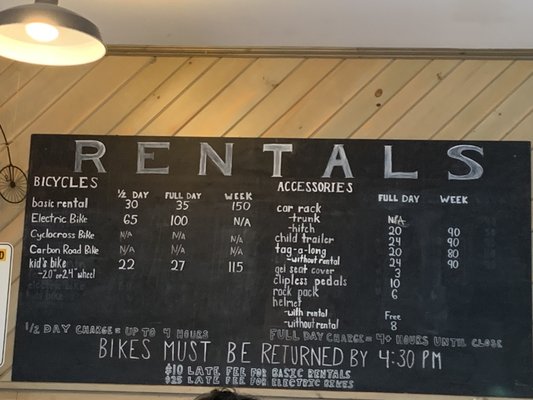 RENTALS
BICYCLES ½ DAY FULL DAY WEEK
basic rental 30 35 150
Electric Bike 65 100 N/A
Cyclocross Bike N/A N/A N/A
Carbon Road Bike N/A N/A N/A
kid's bike 22 27 115
-20" or 24" wheel
ACCESSORIES FULL DAY WEEK
car rack
-trunk N/A
-hitch 20 90
child trailer 24 90
tag-a-long 20 80
-without rental 24 90
gel seat cover 3
clipless pedals 10
rack pack 6
helmet
-with rental Free
-without rental 8
½ DAY CHARGE = UP TO 4 HOURS
FULL DAY CHARGE = 4+ HOURS UNTIL CLOSE
BIKES MUST BE RETURNED BY 4:30 PM
$10 LATE FEE FOR BASIC RENTALS
$25 LATE FEE FOR ELECTRIC BIKES